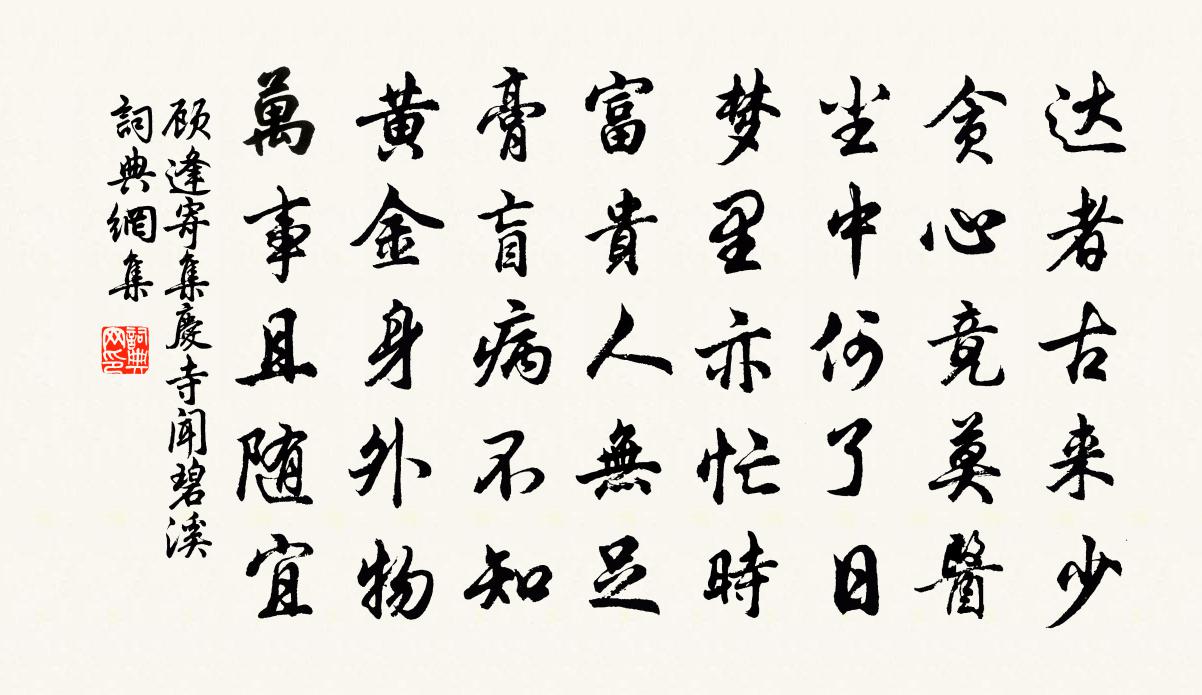 达者古来少
贪心竟莫醫
尘中何了日
梦里亦忙時
富貴人無足
膏肓病不知
黄金身外物
萬事且随宜
顾逢寄集慶寺闻碧溪
詞典網集
詞典网印